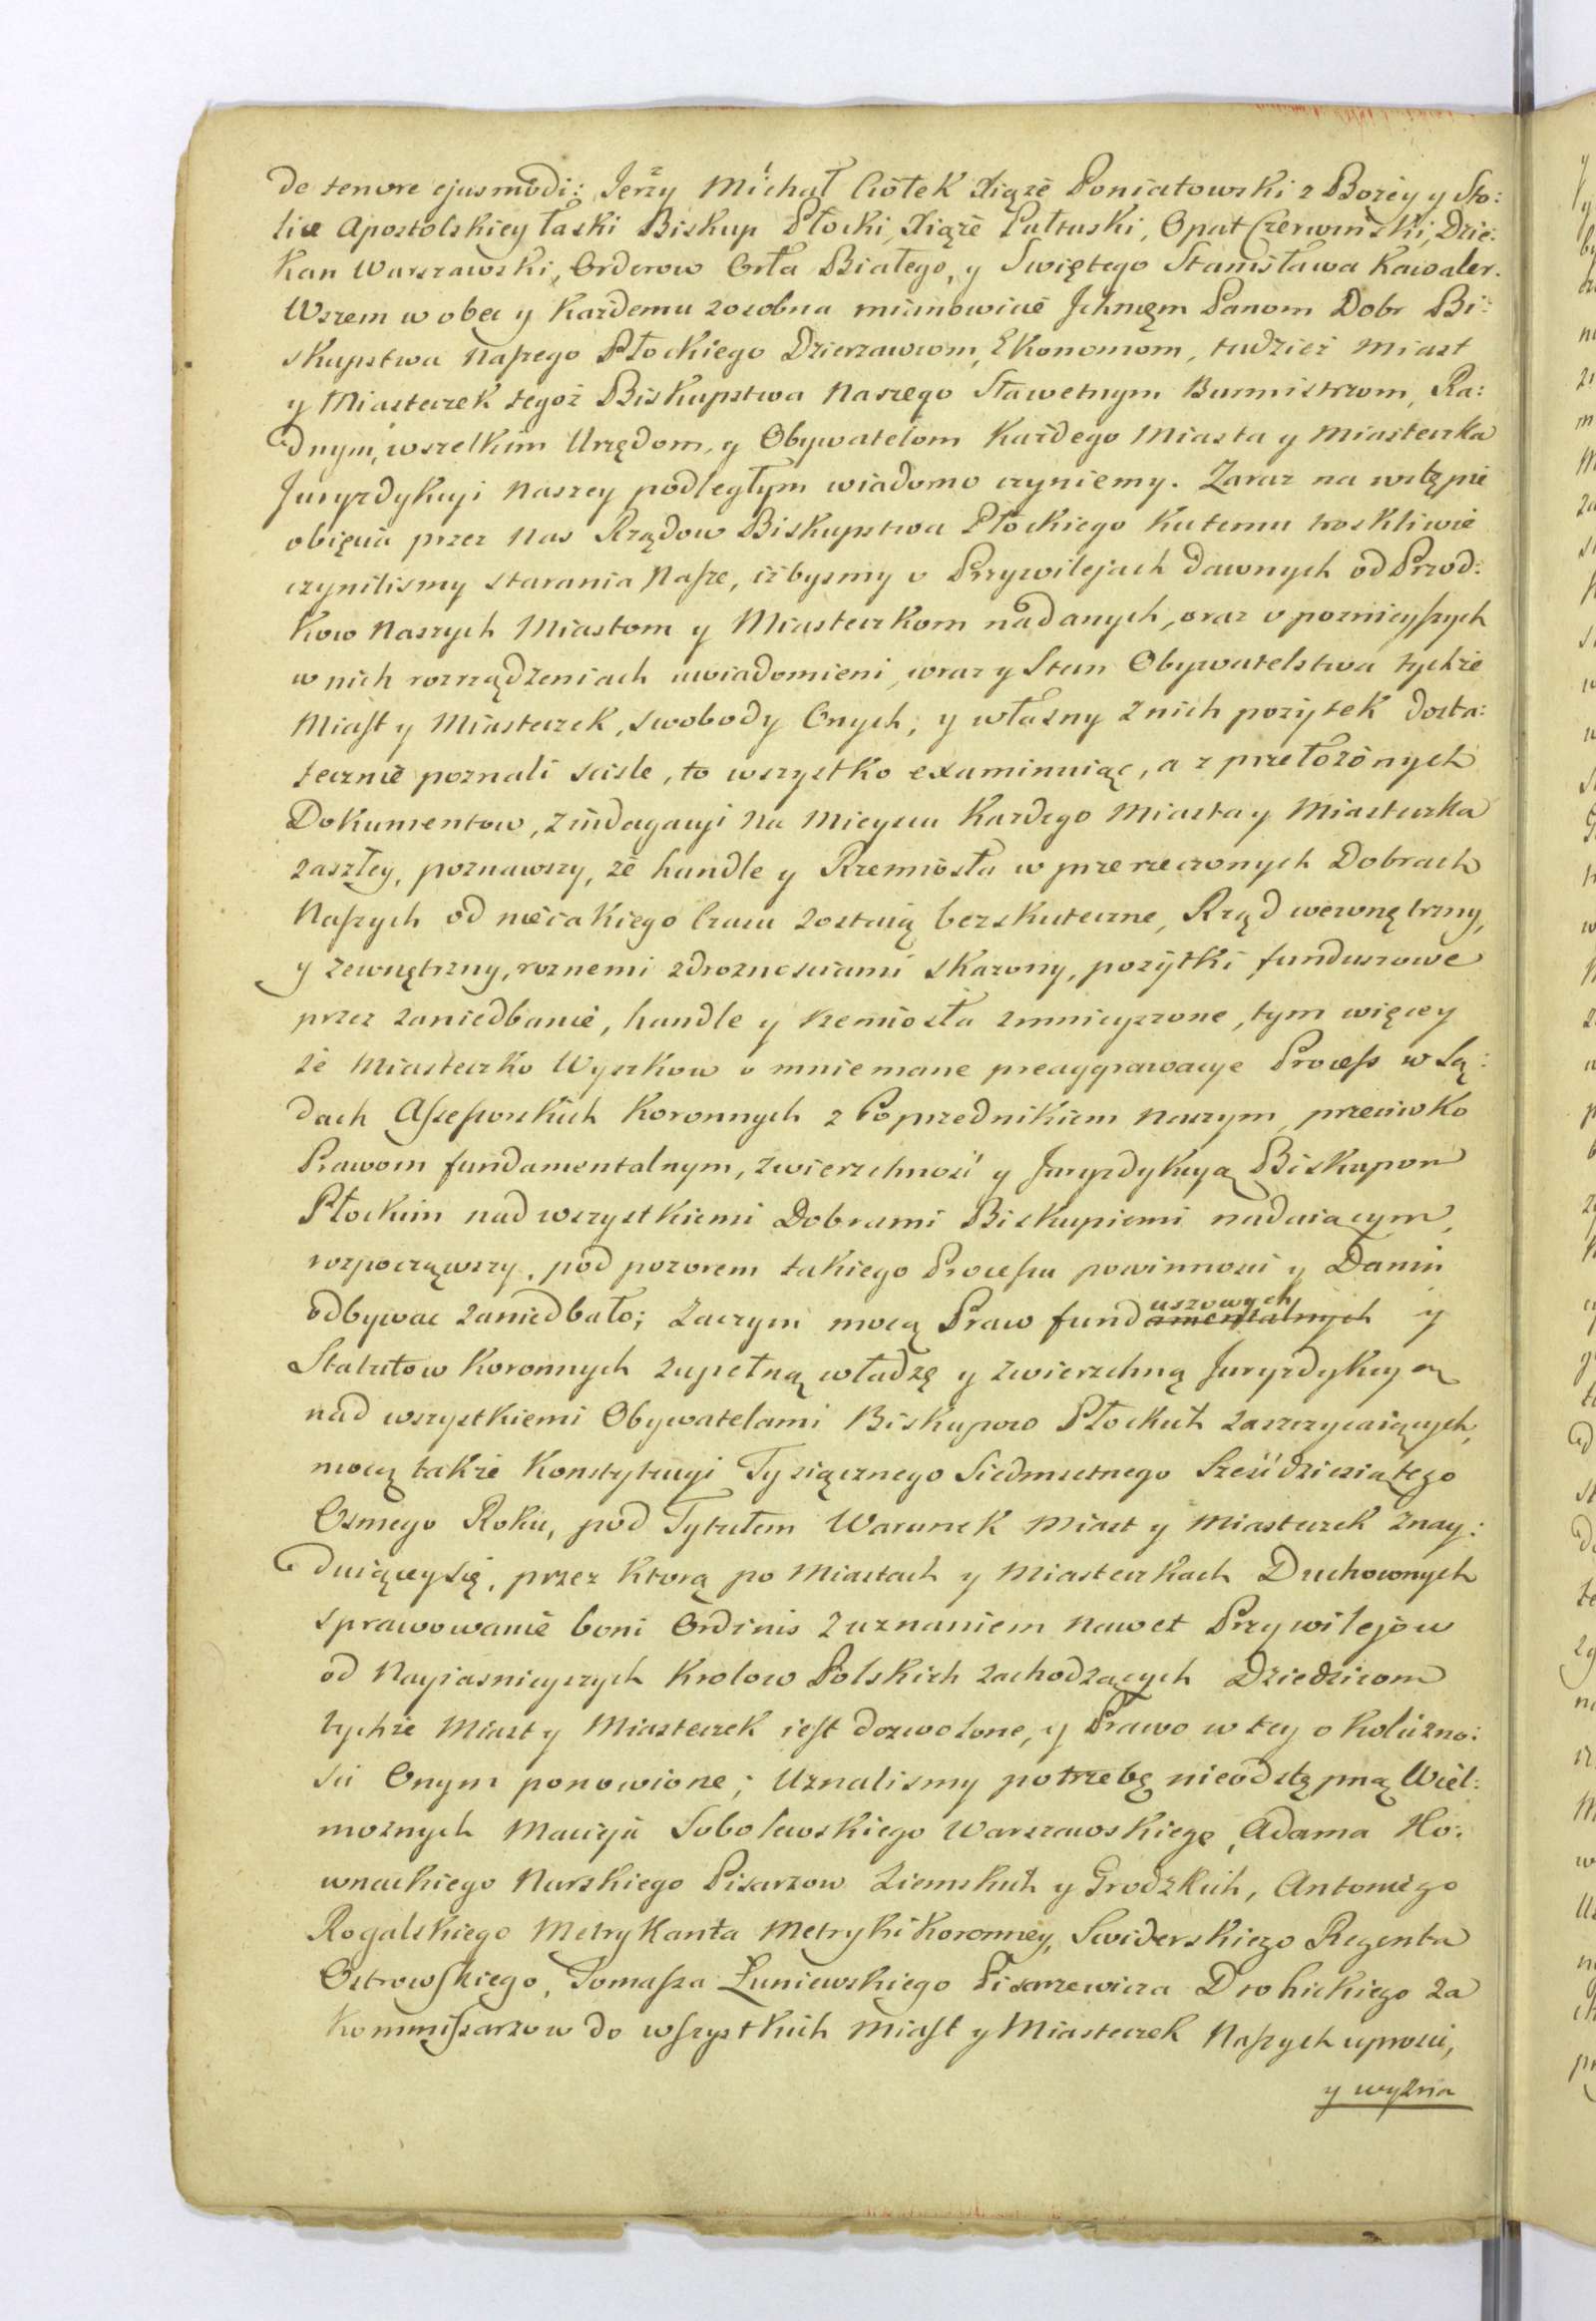 de tenore ejusmodi: Jerzy Michał Ciołek Xiąże Poniatowski z Bożey y Sto:
lice Apostolskiey łaski Biskup Płocki, Xiąże Pułtuski, Opat Czerwinski, Dzie:
kan Warszawski, Orderow Orła Białego, y Swiętego Stanisława Kawaler.
Wszem w obec y każdemu zosobna mianowicie Jchmcęm Panom Dobr Bi:
skupstwa Naszego Płockiego Dzierzawcom, Ekonomom, tudzież Miast
y Miasteczek tegoż Biskupstwa Naszego Sławetnym Burmistrzom, Ra:
dnym, wszelkim Urzędom, y Obywatelom każdego Miasta y Miasteczka
Juryzdykcyi Naszey podległym wiadomo czyniemy. Zaraz na wstępie
obięcia przez Nas Rządow Biskupstwa Płockiego ku temu troskliwie
czynilismy starania Nasze, iżbysmy o Przywilejach dawnych od Przod:
kow Naszych Miastom y Miasteczkom nadanych, oraz o poznieyszych
w nich rozrządzeniach uwiadomieni, wraz y Stan Obywatelstwa tychże
Miast y Miasteczek, swobody Onych, y własny z nich pożytek dosta:
tecznie poznali scisle, to wszystko examinuiąc, a z przełożonych
Dokumentow, z indagacyi na Mieyscu każdego Miasta y Miasteczka
zaszłey, poznawszy, że handle y Rzemiosła w przerzeczonych Dobrach
Naszych od nieiakiego Czasu zostaią bezskuteczne, Rząd wewnętrzny,
y zewnętrzny, roznemi zdroznosciami skażony, pożytki funduszowe
przez zaniedbanie, handle y rzemiosła zmnieyszone, tym więcey
że Miasteczko Wyszkow o mniemane preaggrawacye Process w Są:
dach Assessorskich Koronnych z Poprzednikiem naszym, przeciwko
Prawom fundamentalnym, zwierzchność y Juryzdykcyą Biskupom
Płockim nad wszystkiemi Dobrami Biskupiemi nadaiącym,
rozpocząwszy, pod pozorem takiego Processu powinnosci y Danin
odbywac zaniedbało; Zaczym mocą Praw fundamentalnych uszowych y
Statutow Koronnych zupełną władzę y zwierzchną Juryzdykcyą
nad wszystkiemi Obywatelami Biskupow Płockich zaszczycaiących,
mocą także Konstytucyi Tysiącznego Siedmsetnego Sześćdziesiątego
Osmego Roku, pod Tytułem Warunek Miast y Miasteczek znay:
duiącey się, przez ktorą po Miastach y Miasteczkach Duchownych
sprawowanie boni Ordinis z uznaniem nawet Przywilejow
od Nayiasnieyszych Krolow Polskich zachodzących Dziedzicom
tychże Miast y Miasteczek iest dozwolone, y Prawo w tey okoliczno:
sci Onym ponowione; Uznalismy potrzebę nieodstępną Wiel:
możnych Macieja Sobolewskiego Warszawskiego, Adama Ho:
wnackiego Nurskiego Pisarzow Ziemskich y Grodzkich, Antoniego
Rogalskiego Metrykanta Metryki Koronney, Swiderskiego Regenta
Ostrowskiego, Tomasza Łuniewskiego Pisarzewicza Drohickiego za
Kommissarzow do wszystkich Miast y Miasteczek Naszych uprosić,
y wyzna